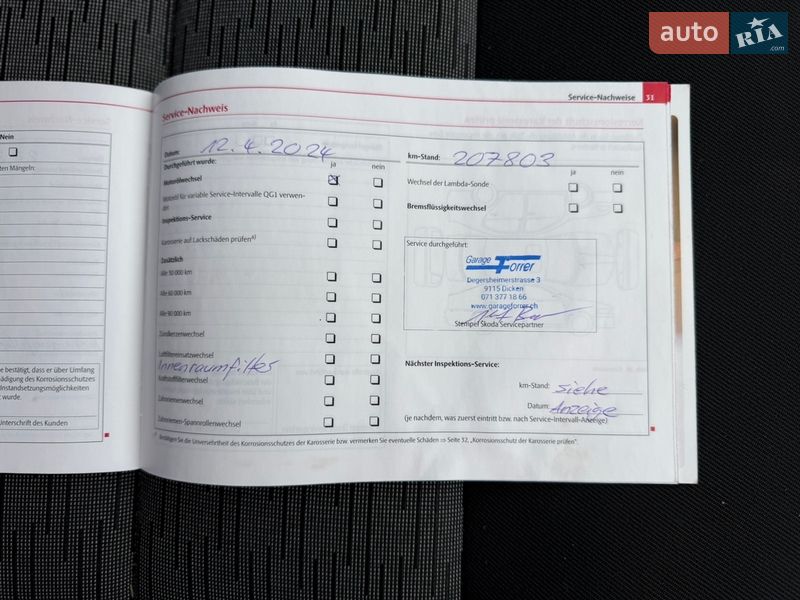 auto RIA .com
Service-Nachweise 31
Service-Nachweis
Nein
ten Mängeln:
e bestätigt, dass er über Umfang
ädigung des Korrosionsschutzes
Instandsetzungsmöglichkeiten
t wurde.
Unterschrift des Kunden
Datum: 12.4.2024
Durchgeführt wurde: ja nein
Motorölwechsel
Motoröl für variable Service-Intervalle QG1 verwen-
den
Inspektions-Service
Karosserie auf Lackschäden prüfen a)
Zusätzlich
Alle 30 000 km
Alle 60 000 km
Alle 90 000 km
Zündkerzenwechsel
Luftfiltereinsatzwechsel
Innenraumfilter
Kraftstofffilterwechsel
Zahnriemenwechsel
Zahnriemen-Spannrollenwechsel
km-Stand: 207803
ja nein
Wechsel der Lambda-Sonde
Bremsflüssigkeitswechsel
Service durchgeführt:
Garage Forrer
Degersheimerstrasse 3
9115 Dicken
071 377 18 66
www.garageforrer.ch
Stempel Škoda Servicepartner
Nächster Inspektions-Service:
km-Stand: siehe
Datum: Anzeige
(je nachdem, was zuerst eintritt bzw. nach Service-Intervall-Anzeige)
a) Bestätigen Sie die Unversehrtheit des Korrosionsschutzes der Karosserie bzw. vermerken Sie eventuelle Schäden ⇒ Seite 32, „Korrosionsschutz der Karosserie prüfen".